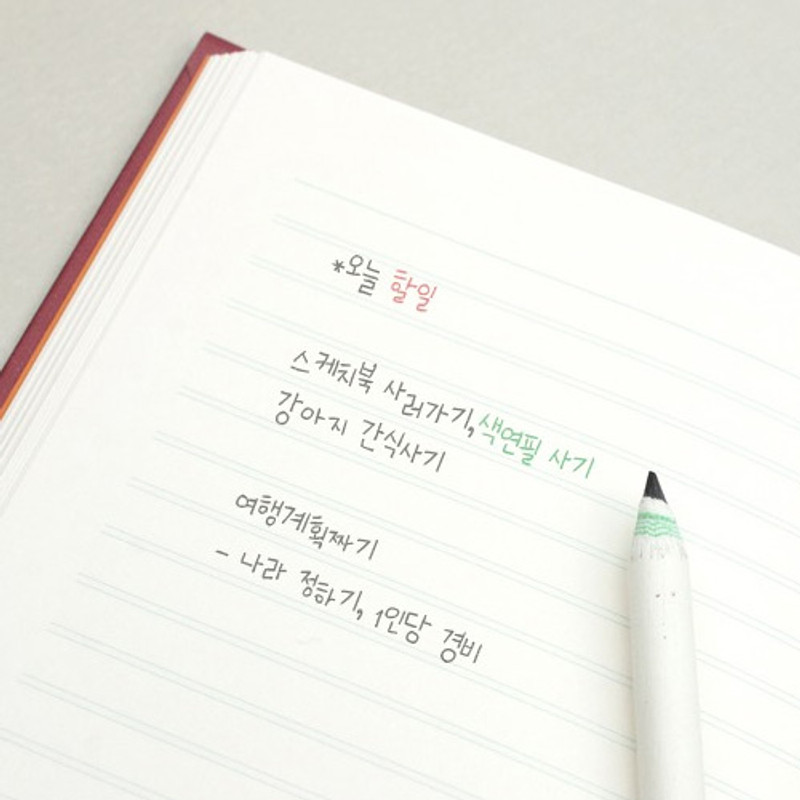 *오늘 할일
스케치북 사러가기, 색연필 사기
강아지 간식사기
여행계획짜기
- 나라 정하기, 1인당 경비